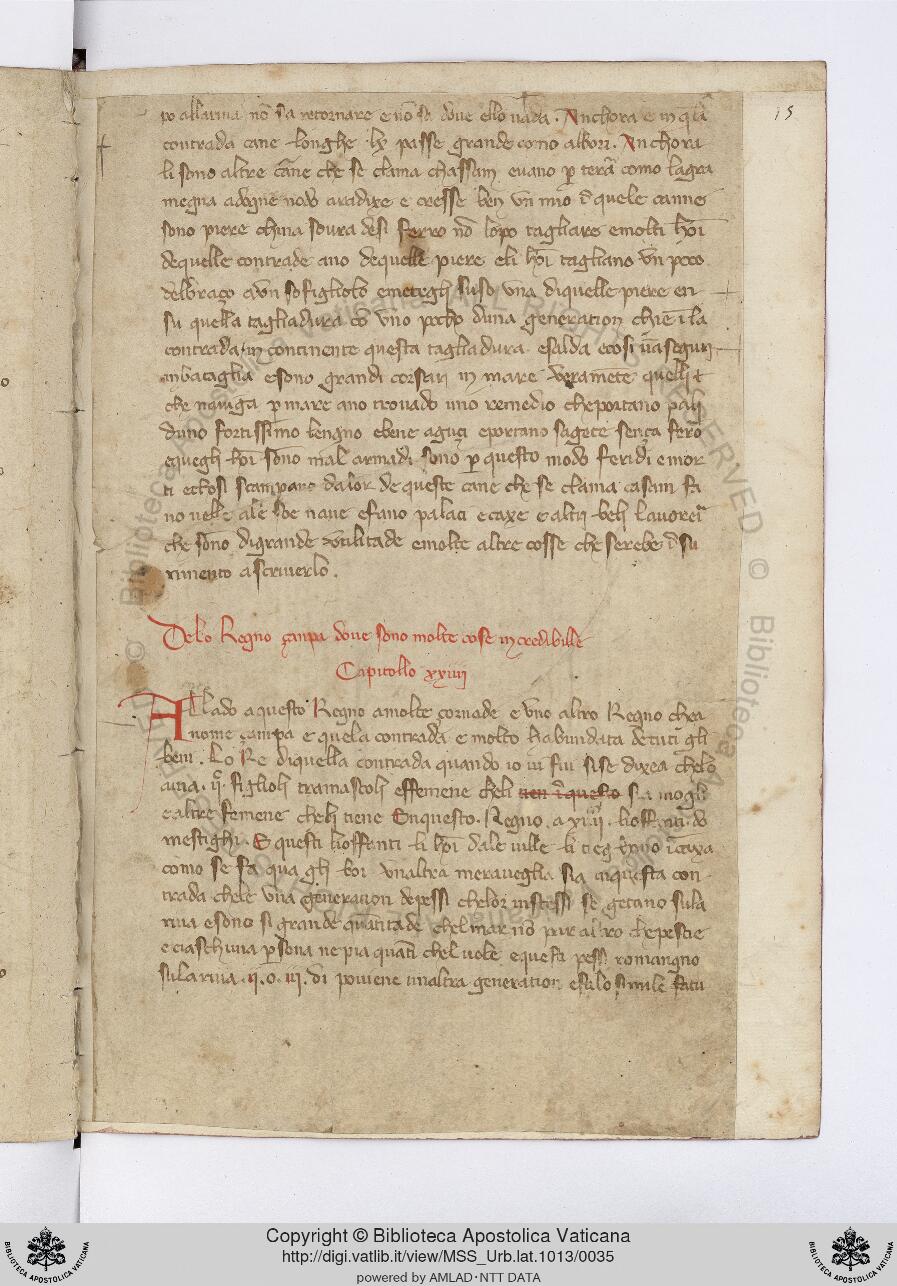 po allarma nō sa retornare e nō sa doue ello vada. Anchora e in q̄lā
15
contrada cane longhe lx passe grande como albori. Anchora
li sono altre cāne che se clama chassam euano ꝑ terā como lagra
megna adogne nodo aradixe e cresse ben vn mio ī quele canne
sono piere china soura desi ferro nō lopo tagliare emolti hōi
dequelle contrade ano dequelle piere eli hōi tagliano vn poco
delbraço avn so figliolo emetegli suso vna diquelle piere en
su quella tagliadura cō vno pocho duna generation chie ī la
contrada in continente questa tagliadura esalda ecosi uaseguri
inbataglia esono grandi corsari in mare veramēte quelli
che nauiga ꝑ mare ano trouado uno remedio cheportano pali
duno fortissimo lengno ebene aguçi eportano sagete sença fero
equegli hōi sono mal armadi sono ꝑ questo modo feridi emor
ti eckosi scampano dalor de queste cane che se clama casam fa
no uelle ale soe naue efano palaci ecaxe e altri belli lauorerī
che sōno digrande vtilitade emolte altre cosse che serebe ī su
rimento ascriuerlo.
Delo Regno çanpa doue sono molte cose incredibille
Capitollo xxiiij
Alado aquesto Regno amolte çornade e vno altro Regno chea
nome çampa e quela contrada e molto habundata detuti gli
beni. Lo Re diquella contrada quando io ui fui sise dixea chelo
auia .ijͨ. figlioli tramascoli effemene cheli sa mogli
ealtre femene cheli tiene Enquesto Regno a xiiij lioffanti do
mestighi. E questi lioffanti li hōi dale uille li tieg ī caxa
como se fa qua gli boi vnaltra merauegla sia inquesta con
trada chele vna generation depessi cheloꝛ instessi se getano sula
riua esono si grande quātitade chel mar nō par altro chepescie
eciaschuna ꝑsona ne pia quāti chel uole equesti pessi romangno
sulariua .ij. o .iij. di poiuene unaltra generation efalo simile fatu
Copyright © Biblioteca Apostolica Vaticana
http://digi.vatlib.it/view/MSS_Urb.lat.1013/0035
powered by AMLAD • NTT DATA